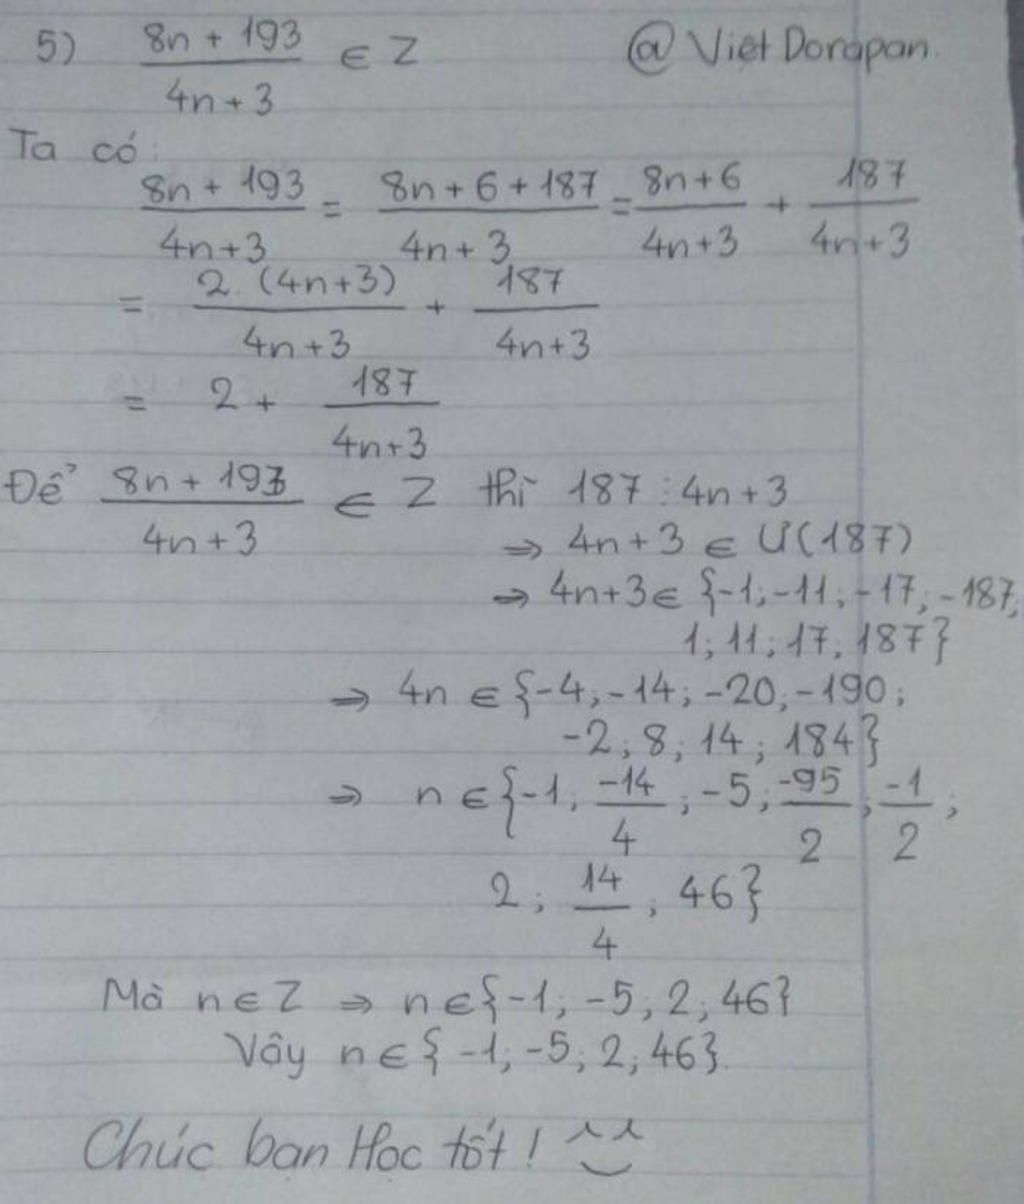 5) (8n + 193)/(4n + 3) ∈ Z @ Việt Dorapan.
Ta có:
(8n + 193)/(4n+3) = (8n + 6 + 187)/(4n + 3) = (8n+6)/(4n+3) + 187/(4n+3)
= (2.(4n+3))/(4n+3) + 187/(4n+3)
= 2 + 187/(4n+3)
Để (8n + 193)/(4n+3) ∈ Z thì 187 ⋮ 4n+3
⇒ 4n+3 ∈ Ư(187)
⇒ 4n+3 ∈ {-1; -11; -17; -187;
1; 11; 17; 187}
⇒ 4n ∈ {-4; -14; -20; -190;
-2; 8; 14; 184}
⇒ n ∈ {-1; -14/4; -5; -95/2; -1/2;
2; 14/4; 46}
Mà n ∈ Z ⇒ n ∈ {-1; -5; 2; 46}
Vậy n ∈ {-1; -5; 2; 46}.
Chúc bạn Học tốt! ^^